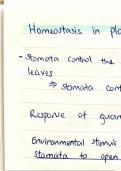 Homeostasis in pla
- Stomata control the
leaves
⇒ stomata cont
Response of guar
Environmental stimuli
stomata to open